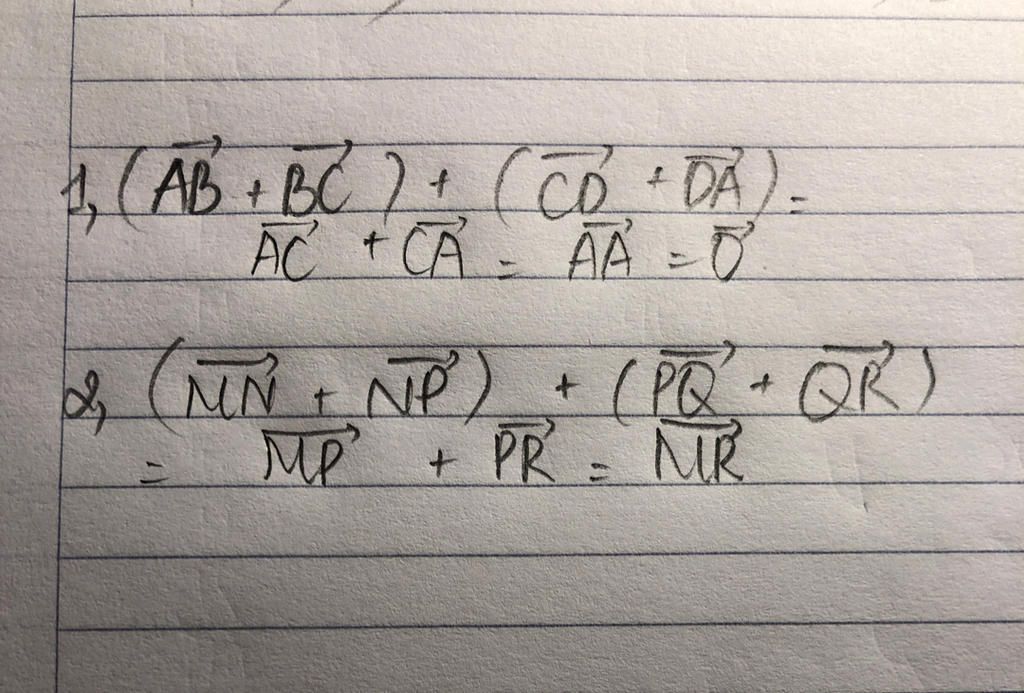 1, (\overrightarrow{AB} + \overrightarrow{BC}) + (\overrightarrow{CD} + \overrightarrow{DA}) =
\overrightarrow{AC} + \overrightarrow{CA} = \overrightarrow{AA} = \overrightarrow{0}
2, (\overrightarrow{MN} + \overrightarrow{NP}) + (\overrightarrow{PQ} + \overrightarrow{QR})
= \overrightarrow{MP} + \overrightarrow{PR} = \overrightarrow{MR}